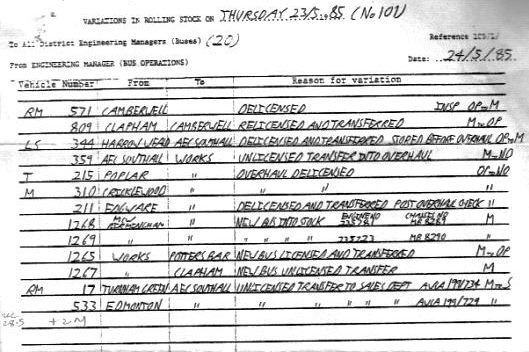 VARIATIONS IN ROLLING STOCK ON THURSDAY 23/5/85 (No 101)
To All District Engineering Managers (Buses) (20) Reference
From ENGINEERING MANAGER (BUS OPERATIONS) Date: 24/5/85
Vehicle Number From To Reason for variation
RM 571 CAMBERWELL DELICENSED INSP OP→M
809 CLAPHAM CAMBERWELL RELICENSED AND TRANSFERRED M→OP
LS 344 HARROW WEALD AEC SOUTHALL DELICENSED AND TRANSFERRED STORED BEFORE OVERHAUL OP→M
359 AEC SOUTHALL WORKS UNLICENSED TRANSFER INTO OVERHAUL M→NO
T 215 POPLAR OVERHAUL DELICENSED OP→NO
M 310 CRICKLEWOOD " " "
211 EDGWARE DELICENSED AND TRANSFERRED POST OVERHAUL CHECK "
1268 MCW BIRMINGHAM " NEW BUS INTO STOCK ENGINE NO CHASSIS NO MB 8289 M
1269 " " " " " " 238223 MB 8290 "
1265 WORKS POTTERS BAR NEW BUS LICENSED AND TRANSFERRED M→OP
1267 " CLAPHAM NEW BUS UNLICENSED TRANSFER M
RM 17 TURNHAM GREEN AEC SOUTHALL UNLICENSED TRANSFER TO SALES DEPT AV1A 199/734 M→S
533 EDMONTON " " " AV1A 199/724 "
28.5 + 2M